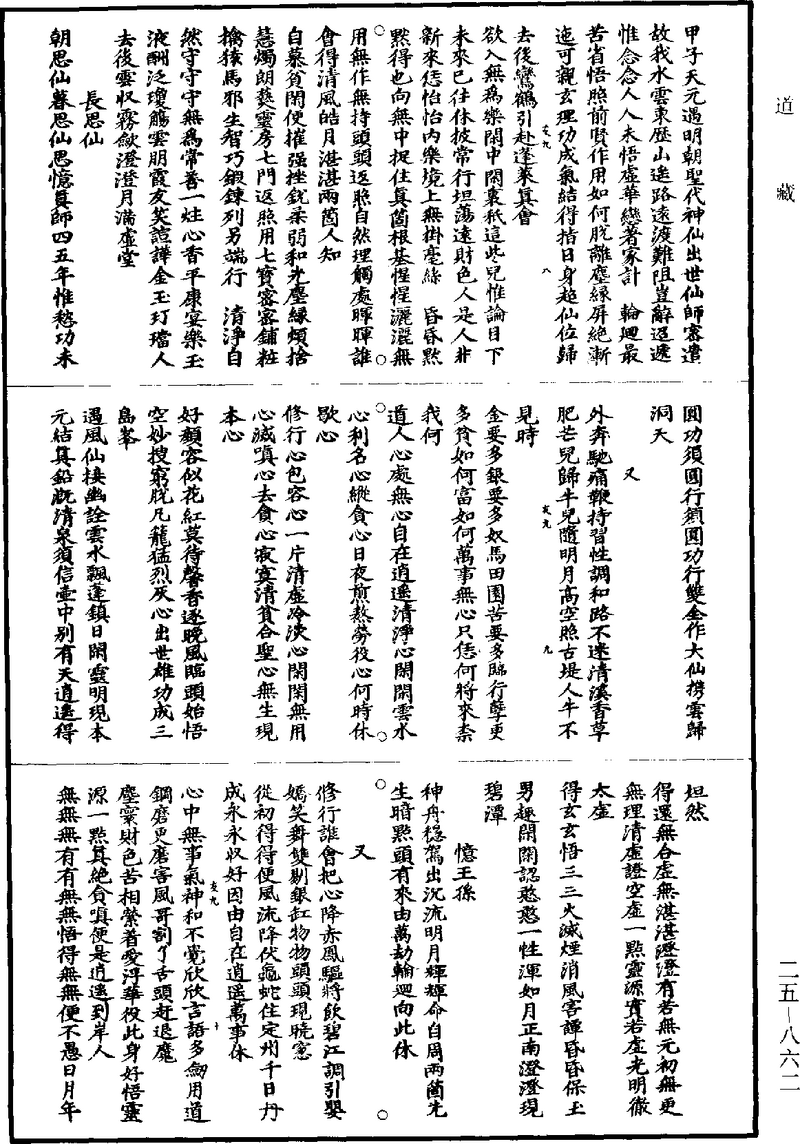 道藏
甲子天元遇明朝聖代神仙出世仙師審遣
故我水雲東歷山遙路遠渡難阻豈辭迢遞
惟念念人人未悟虛華戀著家計　輪廻最
苦省悟照前賢作用如何脫離塵緣屏絕漸
迤可親玄理功成氣結得指日身超仙位歸
去後鸞鶴引赴蓬萊真會
欲入無為樂閑中閑裏秪這些兒惟論目下
未來已往休披常行坦蕩遠財色人是人非
新來恁怡怡內樂境上無掛毫絲　昏昏默
默得也向無中捉住真箇根基惺惺灑灑無
用無作無持頭頭返照自然理觸處暉暉誰
會得清風皓月湛湛兩箇人知
自慕貧閑便摧强挫銳柔弱和光塵緣煩捨
慧燭朗爇靈房七門返照用七寶密密鋪粧
擒猿馬邪生智巧鍛鍊列另端行　清淨自
然守守守無為常善一炷心香平康宴樂玉
液酬泛瓊觴雲朋霞友笑諠譁金玉玎璫人
去後雲収霧歛澄澄月滿虛堂
長思仙
朝思仙暮思仙思憶真師四五年惟愁功未
圓功須圓行須圓功行雙全作大仙携雲歸
洞天
又
外奔馳痛鞭持習性調和路不迷清溪香草
肥芒兒歸牛兒隨明月高空照古堤人牛不
見時
金要多銀要多奴馬田園苦要多臨行孽更
多貧如何富如何萬事無心只恁何將來柰
我何
道人心處無心自在逍遙清淨心閑閑雲水
心利名心縱貪心日夜煎熬勞役心何時休
歇心
修行心包容心一片清虛冷淡心閑閑無用
心滅嗔心去貪心寂寞清貧合聖心無生現
本心
好顏容似花紅莫待馨香逐晚風臨頭始悟
空妙搜窮脫凡籠猛烈灰心出世雄功成三
島峯
遇風仙接幽詮雲水飄蓬鎮日閑靈明現本
元結真鉛漑清泉須信壺中別有天逍遙得
坦然
得還無合虛無湛湛澄澄有若無元初無更
無理清虛證空虛一點靈源實若虛光明徹
太虛
得玄玄悟三三火滅煙消風害譚昏昏保玉
男趣閑閑認憨憨一性渾如月正南澄澄現
碧潭
憶王孫
神舟穩駕出沉流明月輝輝命自周兩箇先
生暗點頭有來由萬劫輪廻向此休
又
修行誰會把心降赤鳳驅將飲碧江調引嬰
嬌笑舞雙剔銀缸物物頭頭現曉窻
從初得得便風流降伏龜蛇住定州千日丹
成永永収好因由自在逍遙萬事休
心中無事氣神和不覺欣欣言語多劒用道
鋼磨更磨害風哥割了舌頭赶退魔
塵寰財色苦相縈着愛浮華役此身好悟靈
源一點真絕貪嗔便是逍遙到岸人
無無無有有無無悟得無無便不愚日月年
二五—八六二